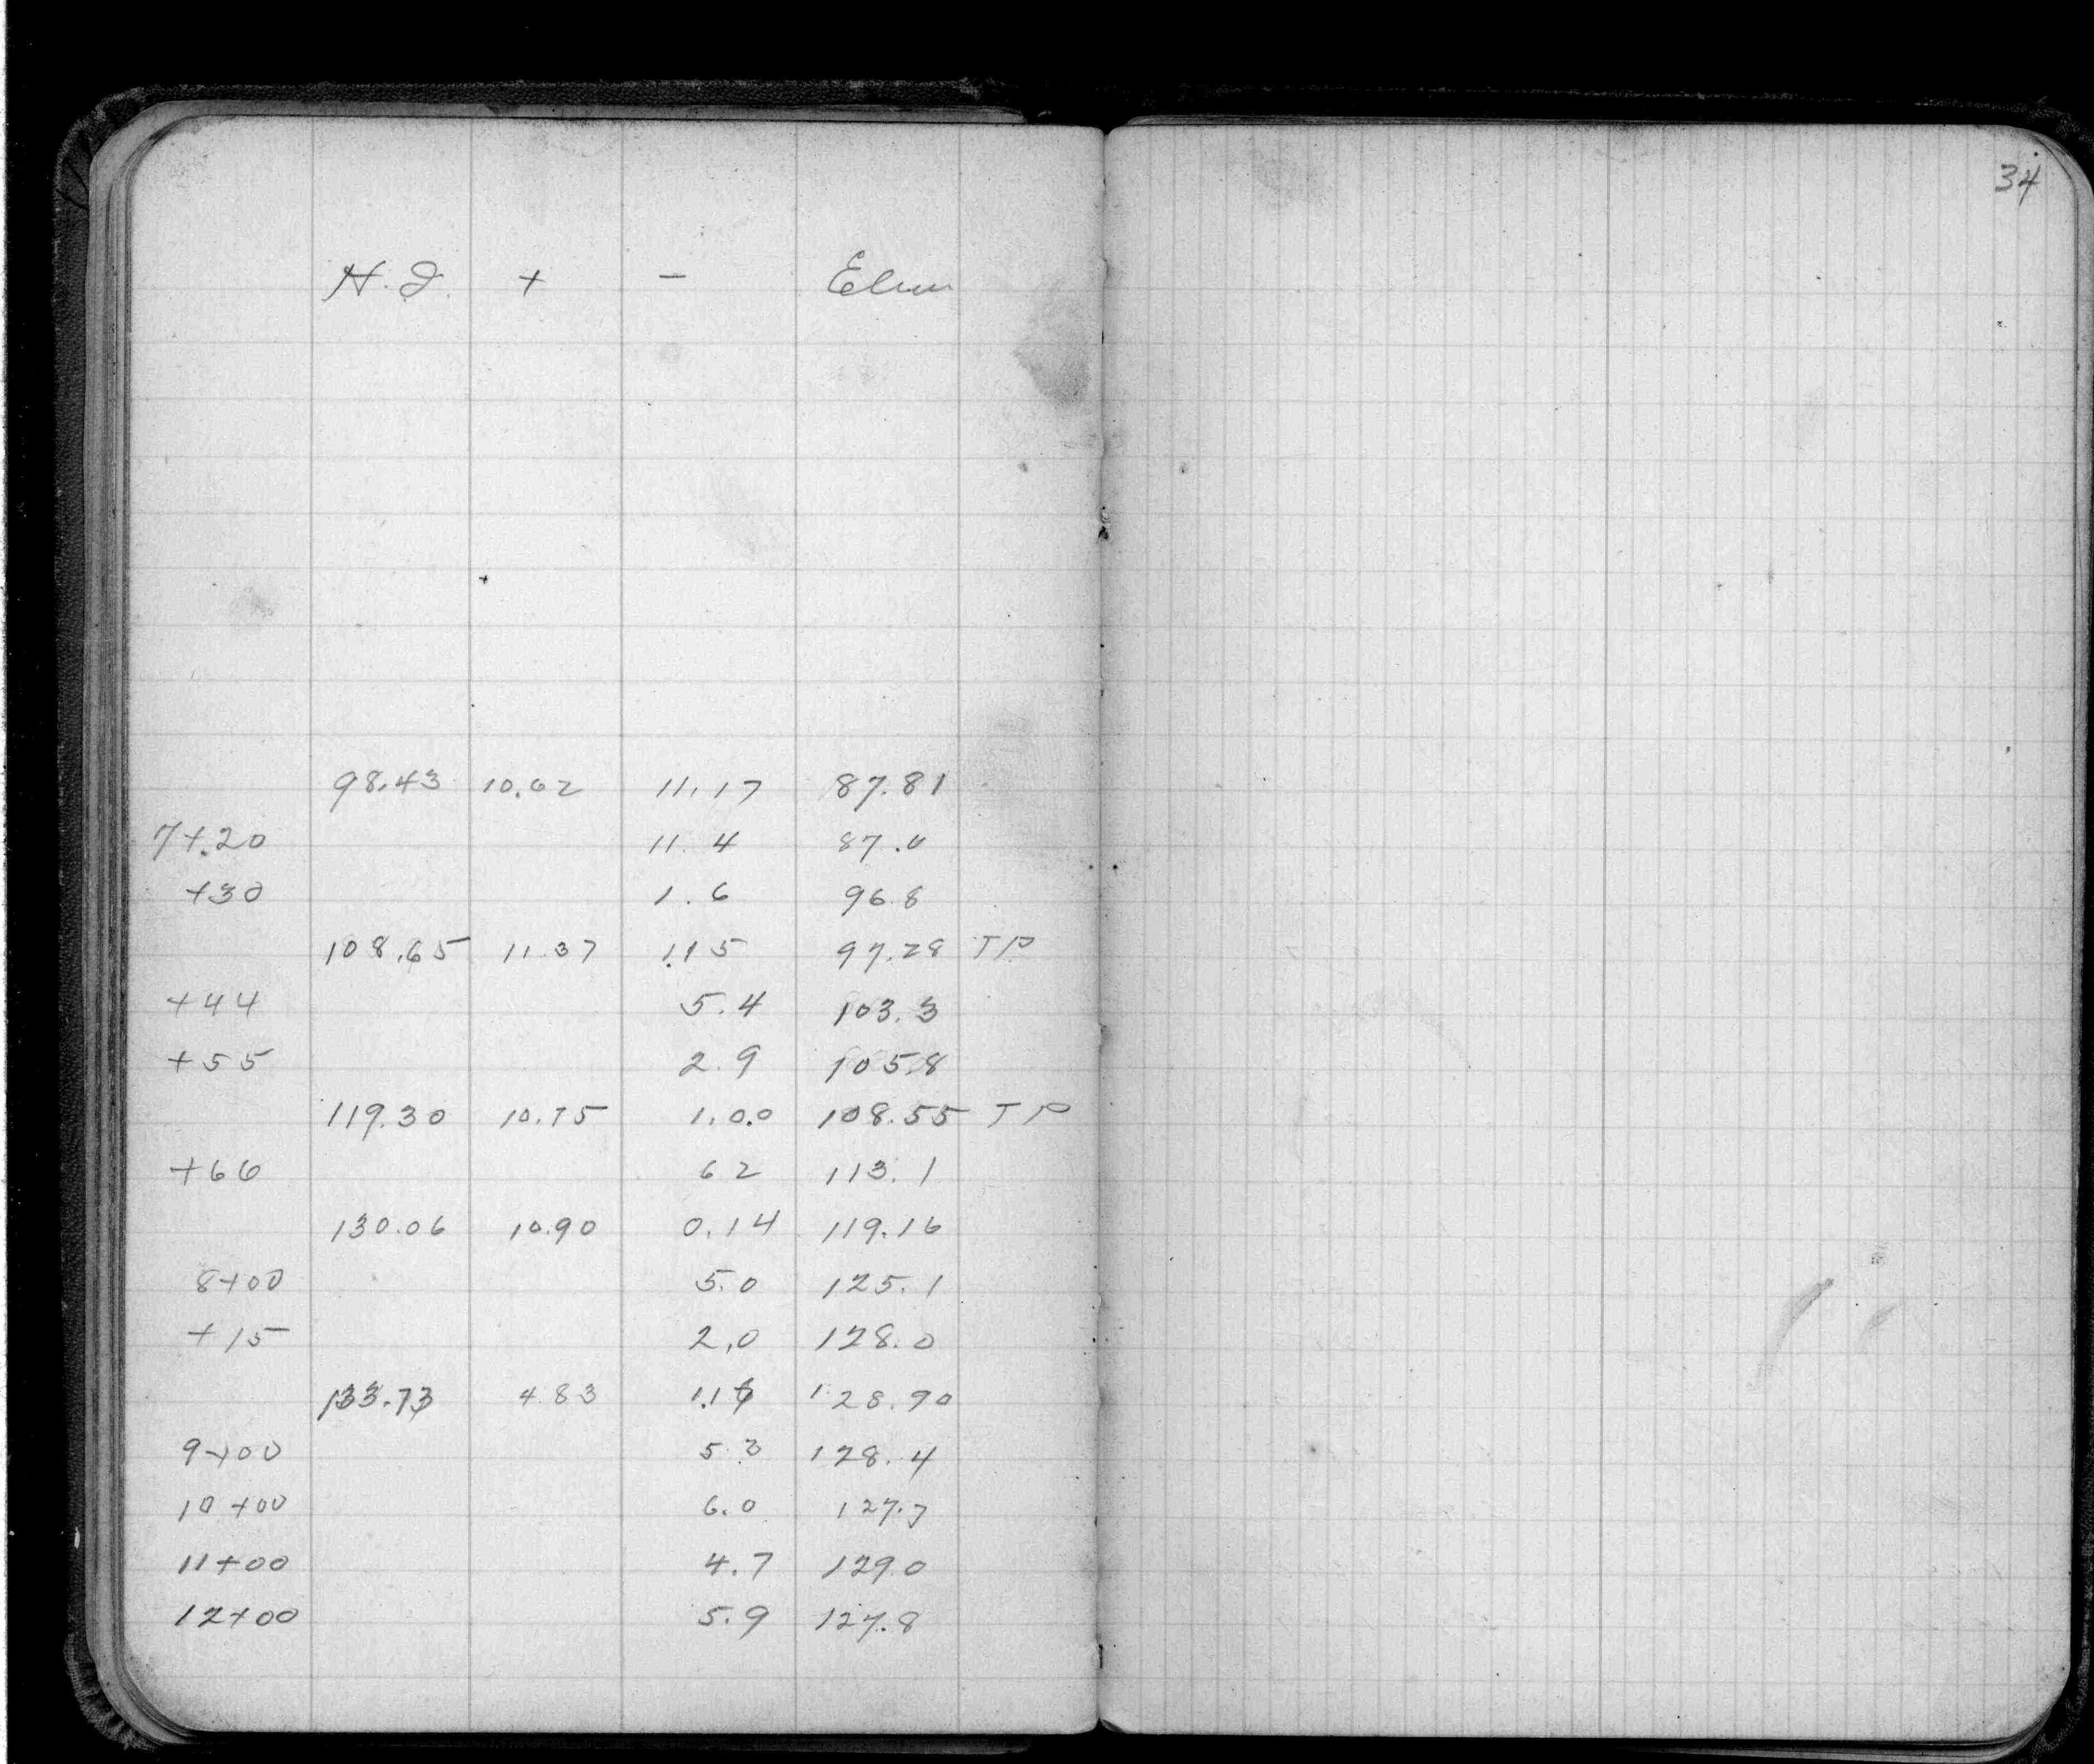 34
H.I. + - Elev
98.43 10.62 11.17 87.81
7+20 11.4 87.0
+30 1.6 96.8
108.65 11.37 1.15 97.28 TP
+44 5.4 103.3
+55 2.9 105.8
119.30 10.75 1.00 108.55 TP
+66 6 2 113.1
130.06 10.90 0.14 119.16
8+00 5.0 125.1
+15 2.0 128.0
133.73 4.83 1.16 128.90
9+00 5.3 128.4
10+00 6.0 127.7
11+00 4.7 129.0
12+00 5.9 127.8